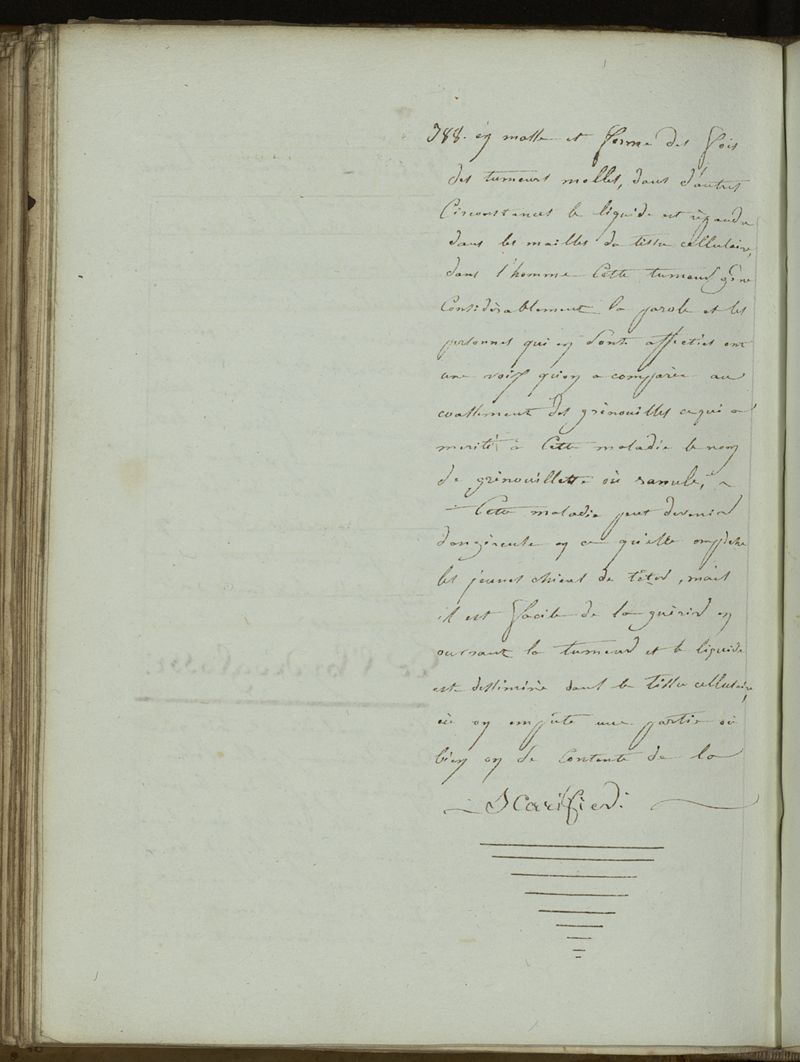 388. en masse et forme des fois
des tumeurs molles, dans d'autres
Circonstances le liquide est répandu
dans les mailles du tissu cellulaire,
dans l'homme Cette tumeur gêne
Considèrablement la parole et les
personnes qui en sont affectées ont
une voix qu'on a comparée au
coassement des grènouilles ce qui a
merité à Cette maladie le nom
de grènouillette où ranule, ~
— Cette maladie peut devenir
dangéreuse en ce qu'elle empêche
les jeunes chiens de têter, mais
il est facile de la guèrir en
ouvrant la tumeur et le liquide
est disseminé dans le tissu cellulaire,
où on empute une partie où
bien on se Contente de la
Scarifier.